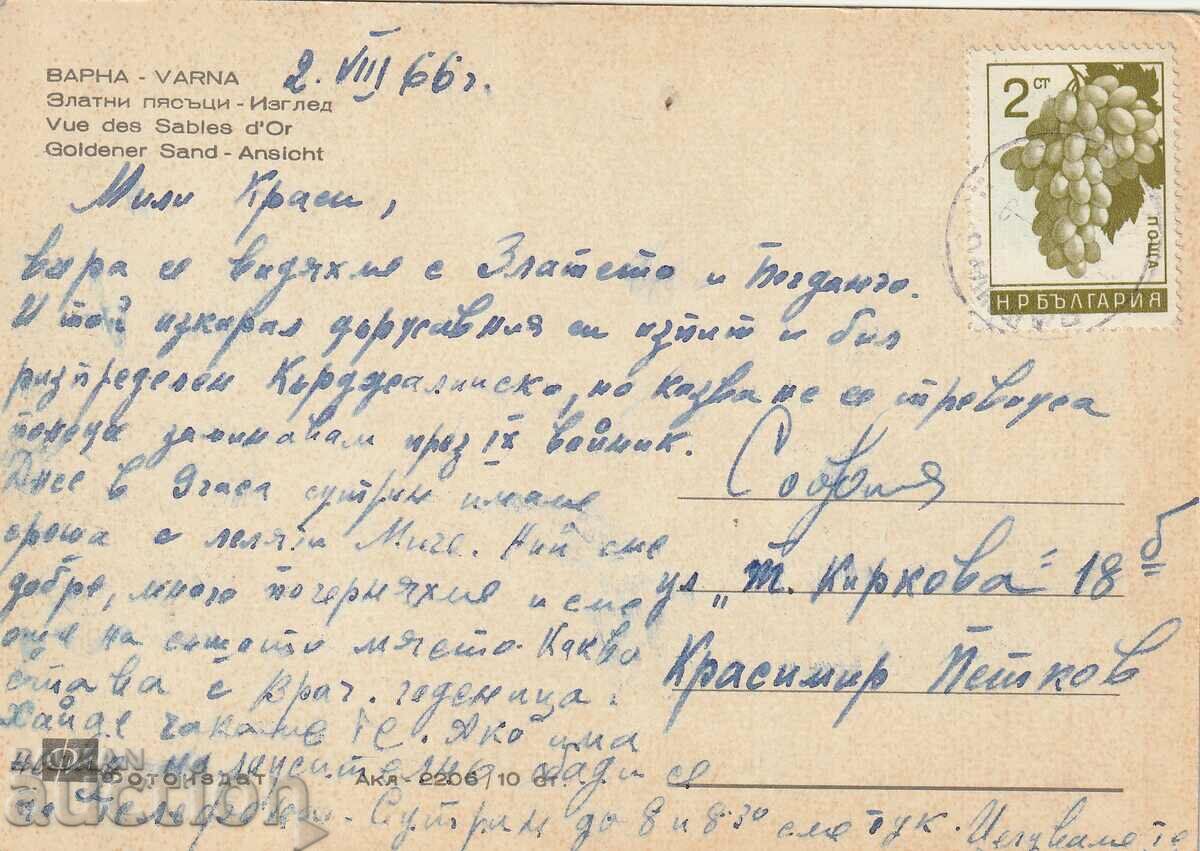 ВАРНА - VARNA
Златни пясъци - Изглед
Vue des Sables d'Or
Goldener Sand - Ansicht
2. VIII 66 г.
2 СТ
ПОЩА
Н.Р. БЪЛГАРИЯ
Мили Краси,
вчера се видяхме с Златето и Богданчо.
И той изкарал държавния си изпит и бил
разпределен Кърджалийско, но казва не се тревожа
понеже заминавам през IX войник.
Днес в 9 часа сутрин имаме
среща с леля Миче. Ний сме
добре, много почерняхме и сме
още на същото място. Какво
става с врач. годеница.
Хайде чакаме те. Ако има
на обади се
по телефона. Сутрин до 8 и 8:30 сме тук. Целуваме те
София
ул. „Т. Киркова" 18 б
Красимир Петков
Фотоиздат
Акл-2206/10 ст.
BALKAN
auction